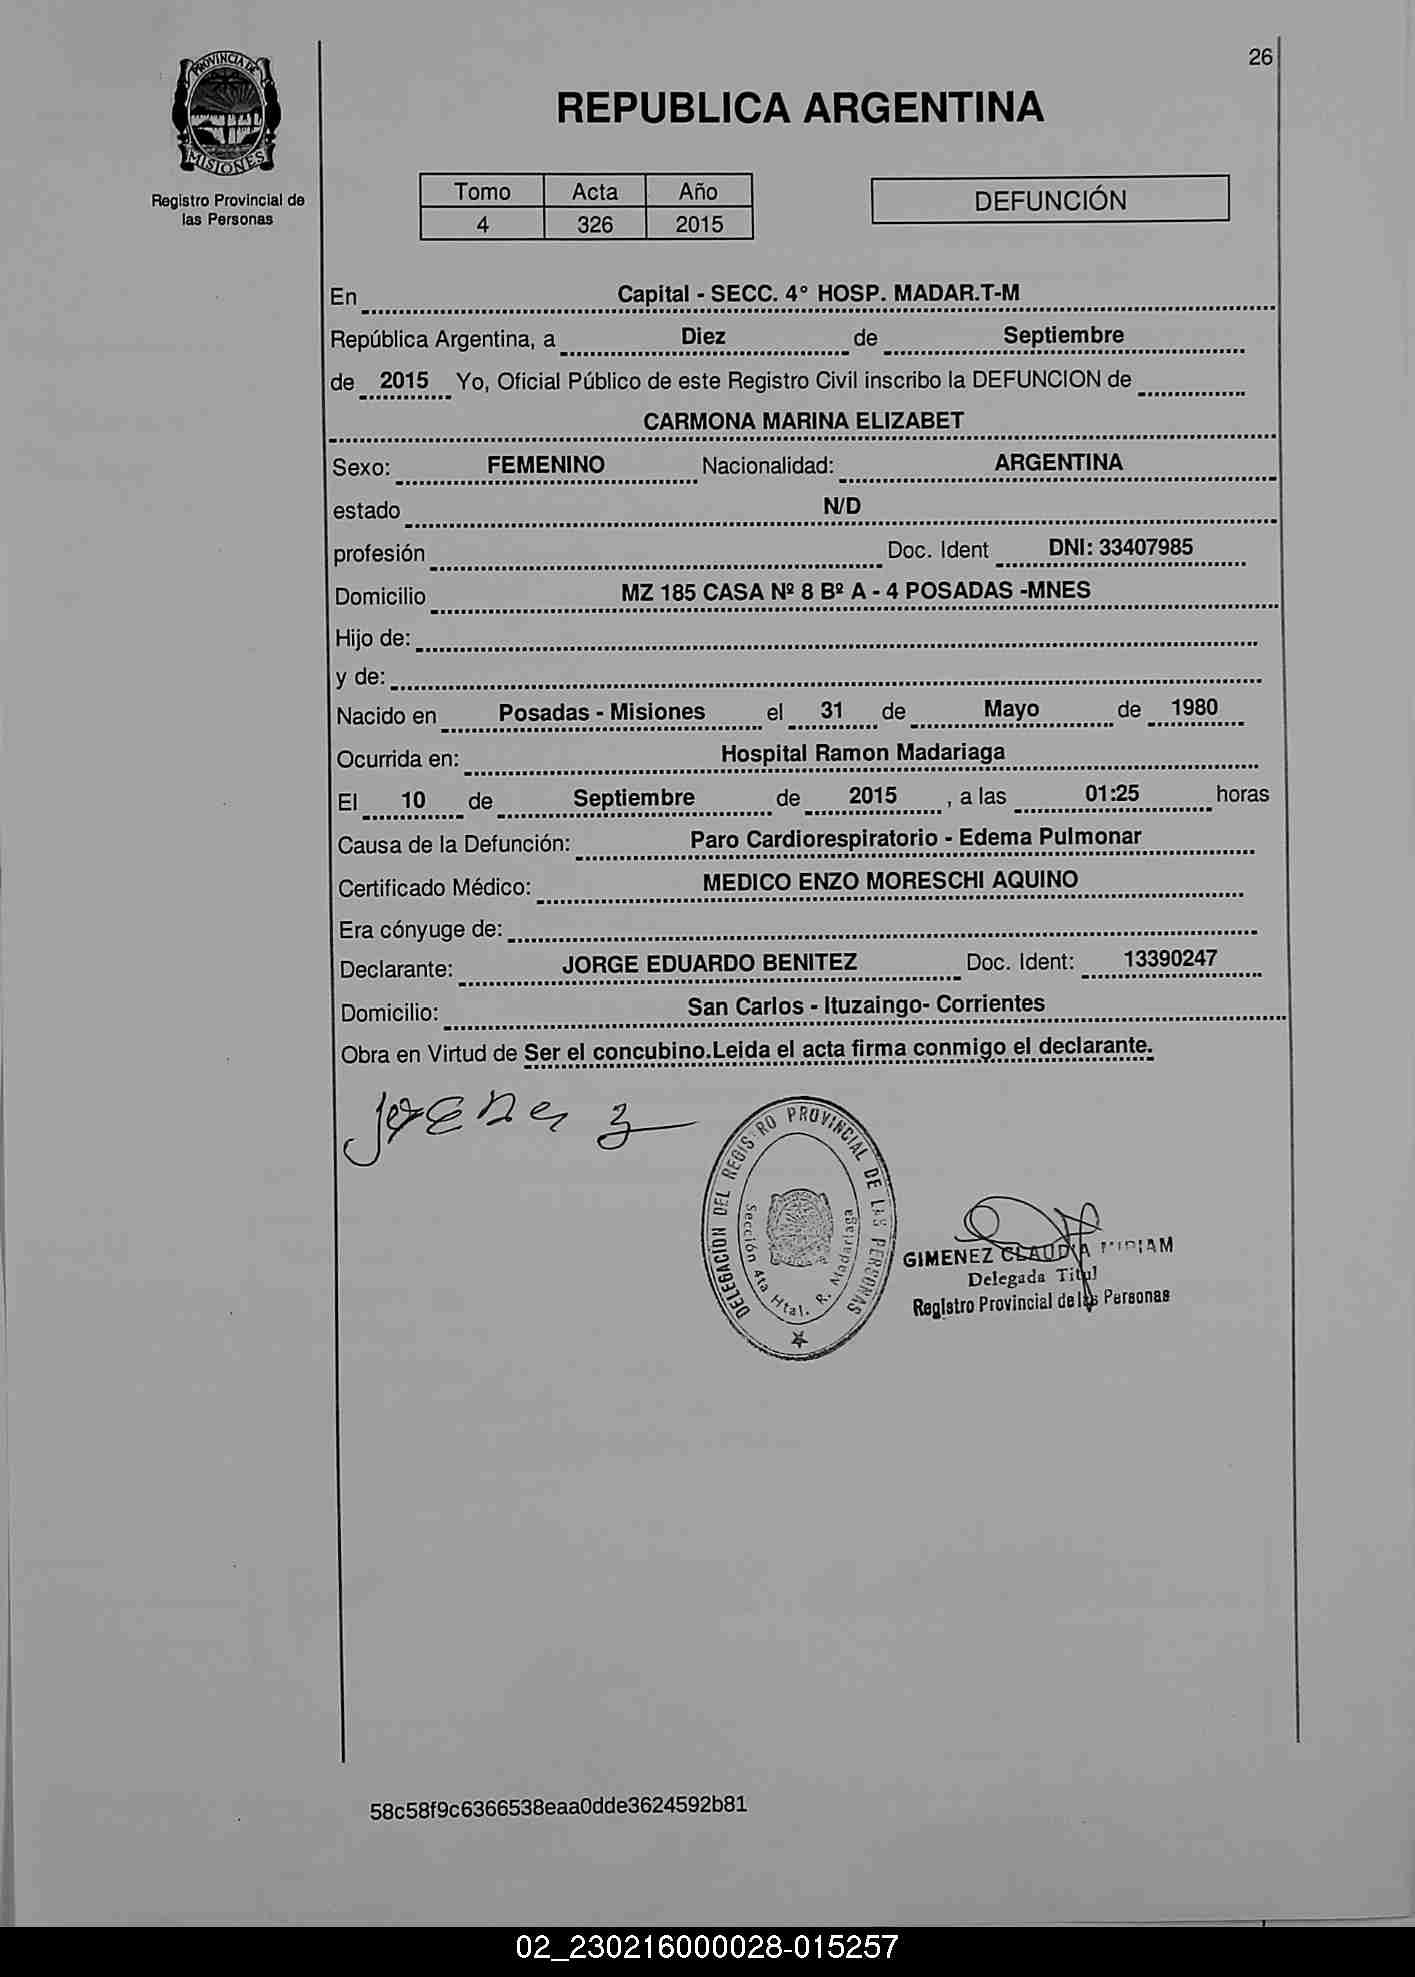 26
PROVINCIA DE
MISIONES
Registro Provincial de
las Personas
REPUBLICA ARGENTINA
Tomo Acta Año
4 326 2015
DEFUNCIÓN
En Capital - SECC. 4° HOSP. MADAR.T-M
República Argentina, a Diez de Septiembre
de 2015 Yo, Oficial Público de este Registro Civil inscribo la DEFUNCION de
CARMONA MARINA ELIZABET
Sexo: FEMENINO Nacionalidad: ARGENTINA
estado N/D
profesión Doc. Ident DNI: 33407985
Domicilio MZ 185 CASA Nº 8 Bº A - 4 POSADAS -MNES
Hijo de:
y de:
Nacido en Posadas - Misiones el 31 de Mayo de 1980
Ocurrida en: Hospital Ramon Madariaga
El 10 de Septiembre de 2015 , a las 01:25 horas
Causa de la Defunción: Paro Cardiorespiratorio - Edema Pulmonar
Certificado Médico: MEDICO ENZO MORESCHI AQUINO
Era cónyuge de:
Declarante: JORGE EDUARDO BENITEZ Doc. Ident: 13390247
Domicilio: San Carlos - Ituzaingo- Corrientes
Obra en Virtud de Ser el concubino.Leida el acta firma conmigo el declarante.
DELEGACION DEL REGISTRO PROVINCIAL DE LAS PERSONAS
Sección 4ta Htal. R. Madariaga
GIMENEZ CLAUDIA MIRIAM
Delegada Titul
Registro Provincial de las Personas
58c58f9c6366538eaa0dde3624592b81
02_230216000028-015257